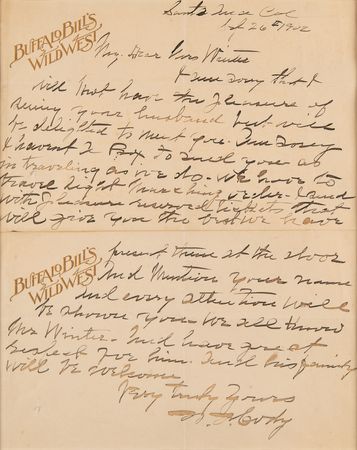 BUFFALO BILL'S
WILD WEST
Santa Rosa Cal
Sept 26th 1902
My Dear Mrs Winter
I am sorry that I
will not have the pleasure of
seeing your husband but will
be delighted to meet you. Am sorry
I havent a Box to send you as
in traveling as we do. We have to
travel light marching order. I send
with pleasure reserved tickets that
will give you the best we have
BUFFALO BILL'S
WILD WEST
present them at the door
And Mention your name
And every attention will
be shown you. We all know
Mr Winter. And have great
respect for him. And his family
will be welcome
Very truly yours
W. F. Cody